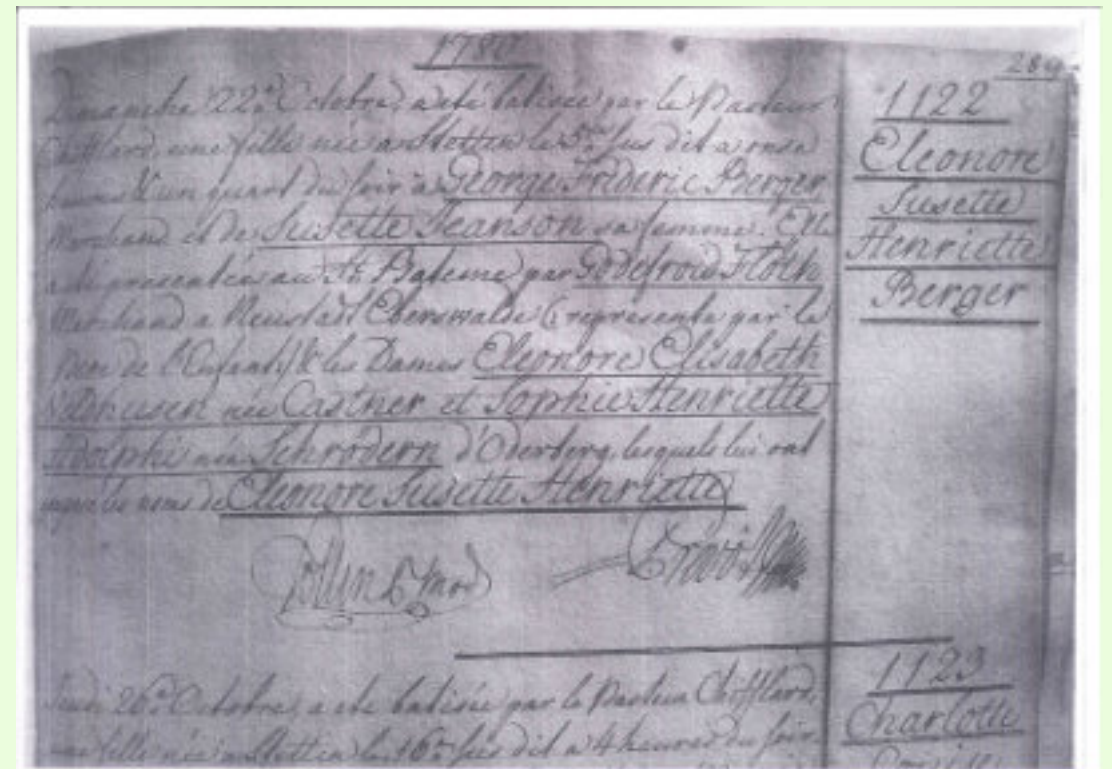 1780
289
Dimanche 22e Octobre a eté batisée par le Pasteur
Chifflard, une fille née a Stettin le susdit a onze
heures & un quart du soir a George Frideric Berger
Marchand et de Susette Jeanson sa femme. Elle
a eté presentée au St. Bateme par Godefroid Floth
Marchand a Neustadt Eberswalde (represente par le
pere de l'Enfant) & les Dames Eleonore Elisabeth
née Castner et Sophie Henriette
Adolphi née Schrödern d'Oderberg, lesquels lui ont
les noms de Eleonore Susette Henriette
1122
Eleonore
Susette
Henriette
Berger
Jeudi 26e Octobre, a ete batisée par le Pasteur Chifflard,
une fille née a Stettin le 16e susdit a 4 heures du soir
1123
Charlotte